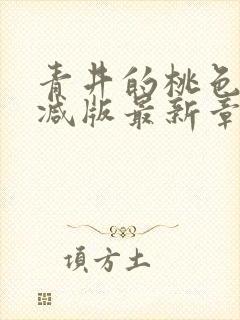 青井的桃色
减版最新章
項方土